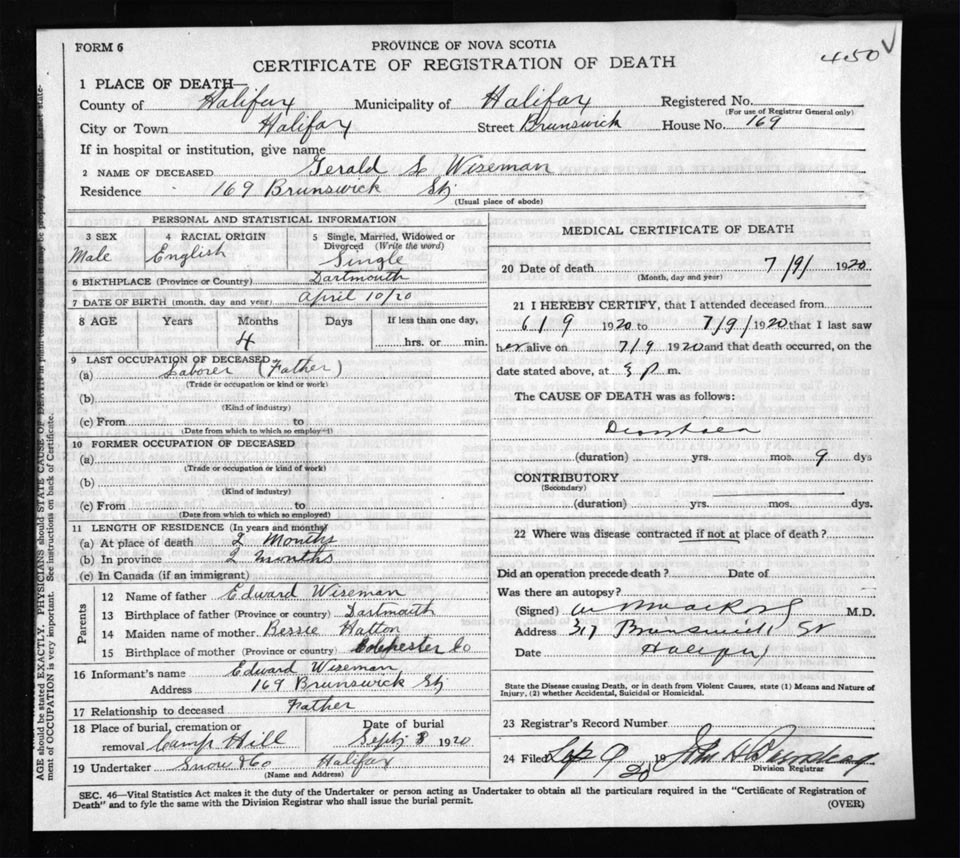 FORM 6
PROVINCE OF NOVA SCOTIA
450
CERTIFICATE OF REGISTRATION OF DEATH
1 PLACE OF DEATH—
County of Halifax Municipality of Halifax Registered No.
(For use of Registrar General only)
City or Town Halifax Street Brunswick House No. 169
If in hospital or institution, give name
2 NAME OF DECEASED Gerald L Wiseman
Residence 169 Brunswick St
(Usual place of abode)
PERSONAL AND STATISTICAL INFORMATION
3 SEX 4 RACIAL ORIGIN 5 Single, Married, Widowed or Divorced (Write the word)
Male English Single
6 BIRTHPLACE (Province or Country) Dartmouth
7 DATE OF BIRTH (month, day and year) April 10/20
8 AGE Years Months Days If less than one day,
4 hrs. or min.
9 LAST OCCUPATION OF DECEASED
(a) Laborer (Father)
(Trade or occupation or kind or work)
(b)
(Kind of industry)
(c) From to
(Date from which to which so employed)
10 FORMER OCCUPATION OF DECEASED
(a)
(Trade or occupation or kind of work)
(b)
(Kind of industry)
(c) From to
(Date from which to which so employed)
11 LENGTH OF RESIDENCE (In years and months)
(a) At place of death 2 Months
(b) In province 2 months
(c) In Canada (if an immigrant)
Parents
12 Name of father Edward Wiseman
13 Birthplace of father (Province or country) Dartmouth
14 Maiden name of mother Bessie Hatton
15 Birthplace of mother (Province or country) Colchester Co
16 Informant's name Edward Wiseman
Address 169 Brunswick St
17 Relationship to deceased Father
18 Place of burial, cremation or removal Camp Hill
Date of burial Sept 8 1920
19 Undertaker Snow & Co Halifax
(Name and Address)
MEDICAL CERTIFICATE OF DEATH
20 Date of death 7/9/ 1920
(Month, day and year)
21 I HEREBY CERTIFY, that I attended deceased from
6/9 1920 to 7/9/1920 that I last saw
her alive on 7/9 1920 and that death occurred, on the
date stated above, at 3 p m.
The CAUSE OF DEATH was as follows:
Diarrhoea
(duration) yrs. mos. 9 dys
CONTRIBUTORY
(Secondary)
(duration) yrs. mos. dys.
22 Where was disease contracted if not at place of death?
Did an operation precede death? Date of
Was there an autopsy?
(Signed) M.D.
Address 317 Brunswick St
Date Halifax
State the Disease causing Death, or in death from Violent Causes, state (1) Means and Nature of
Injury, (2) whether Accidental, Suicidal or Homicidal.
23 Registrar's Record Number
24 Filed Sep 9 19 20 John H
Division Registrar
SEC. 46—Vital Statistics Act makes it the duty of the Undertaker or person acting as Undertaker to obtain all the particulars required in the "Certificate of Registration of
Death" and to fyle the same with the Division Registrar who shall issue the burial permit.
(OVER)
AGE should be stated EXACTLY. PHYSICIANS should STATE CAUSE OF DEATH in plain terms so that it may be properly classified. Exact state-
ment of OCCUPATION is very important. See instructions on back of Certificate.